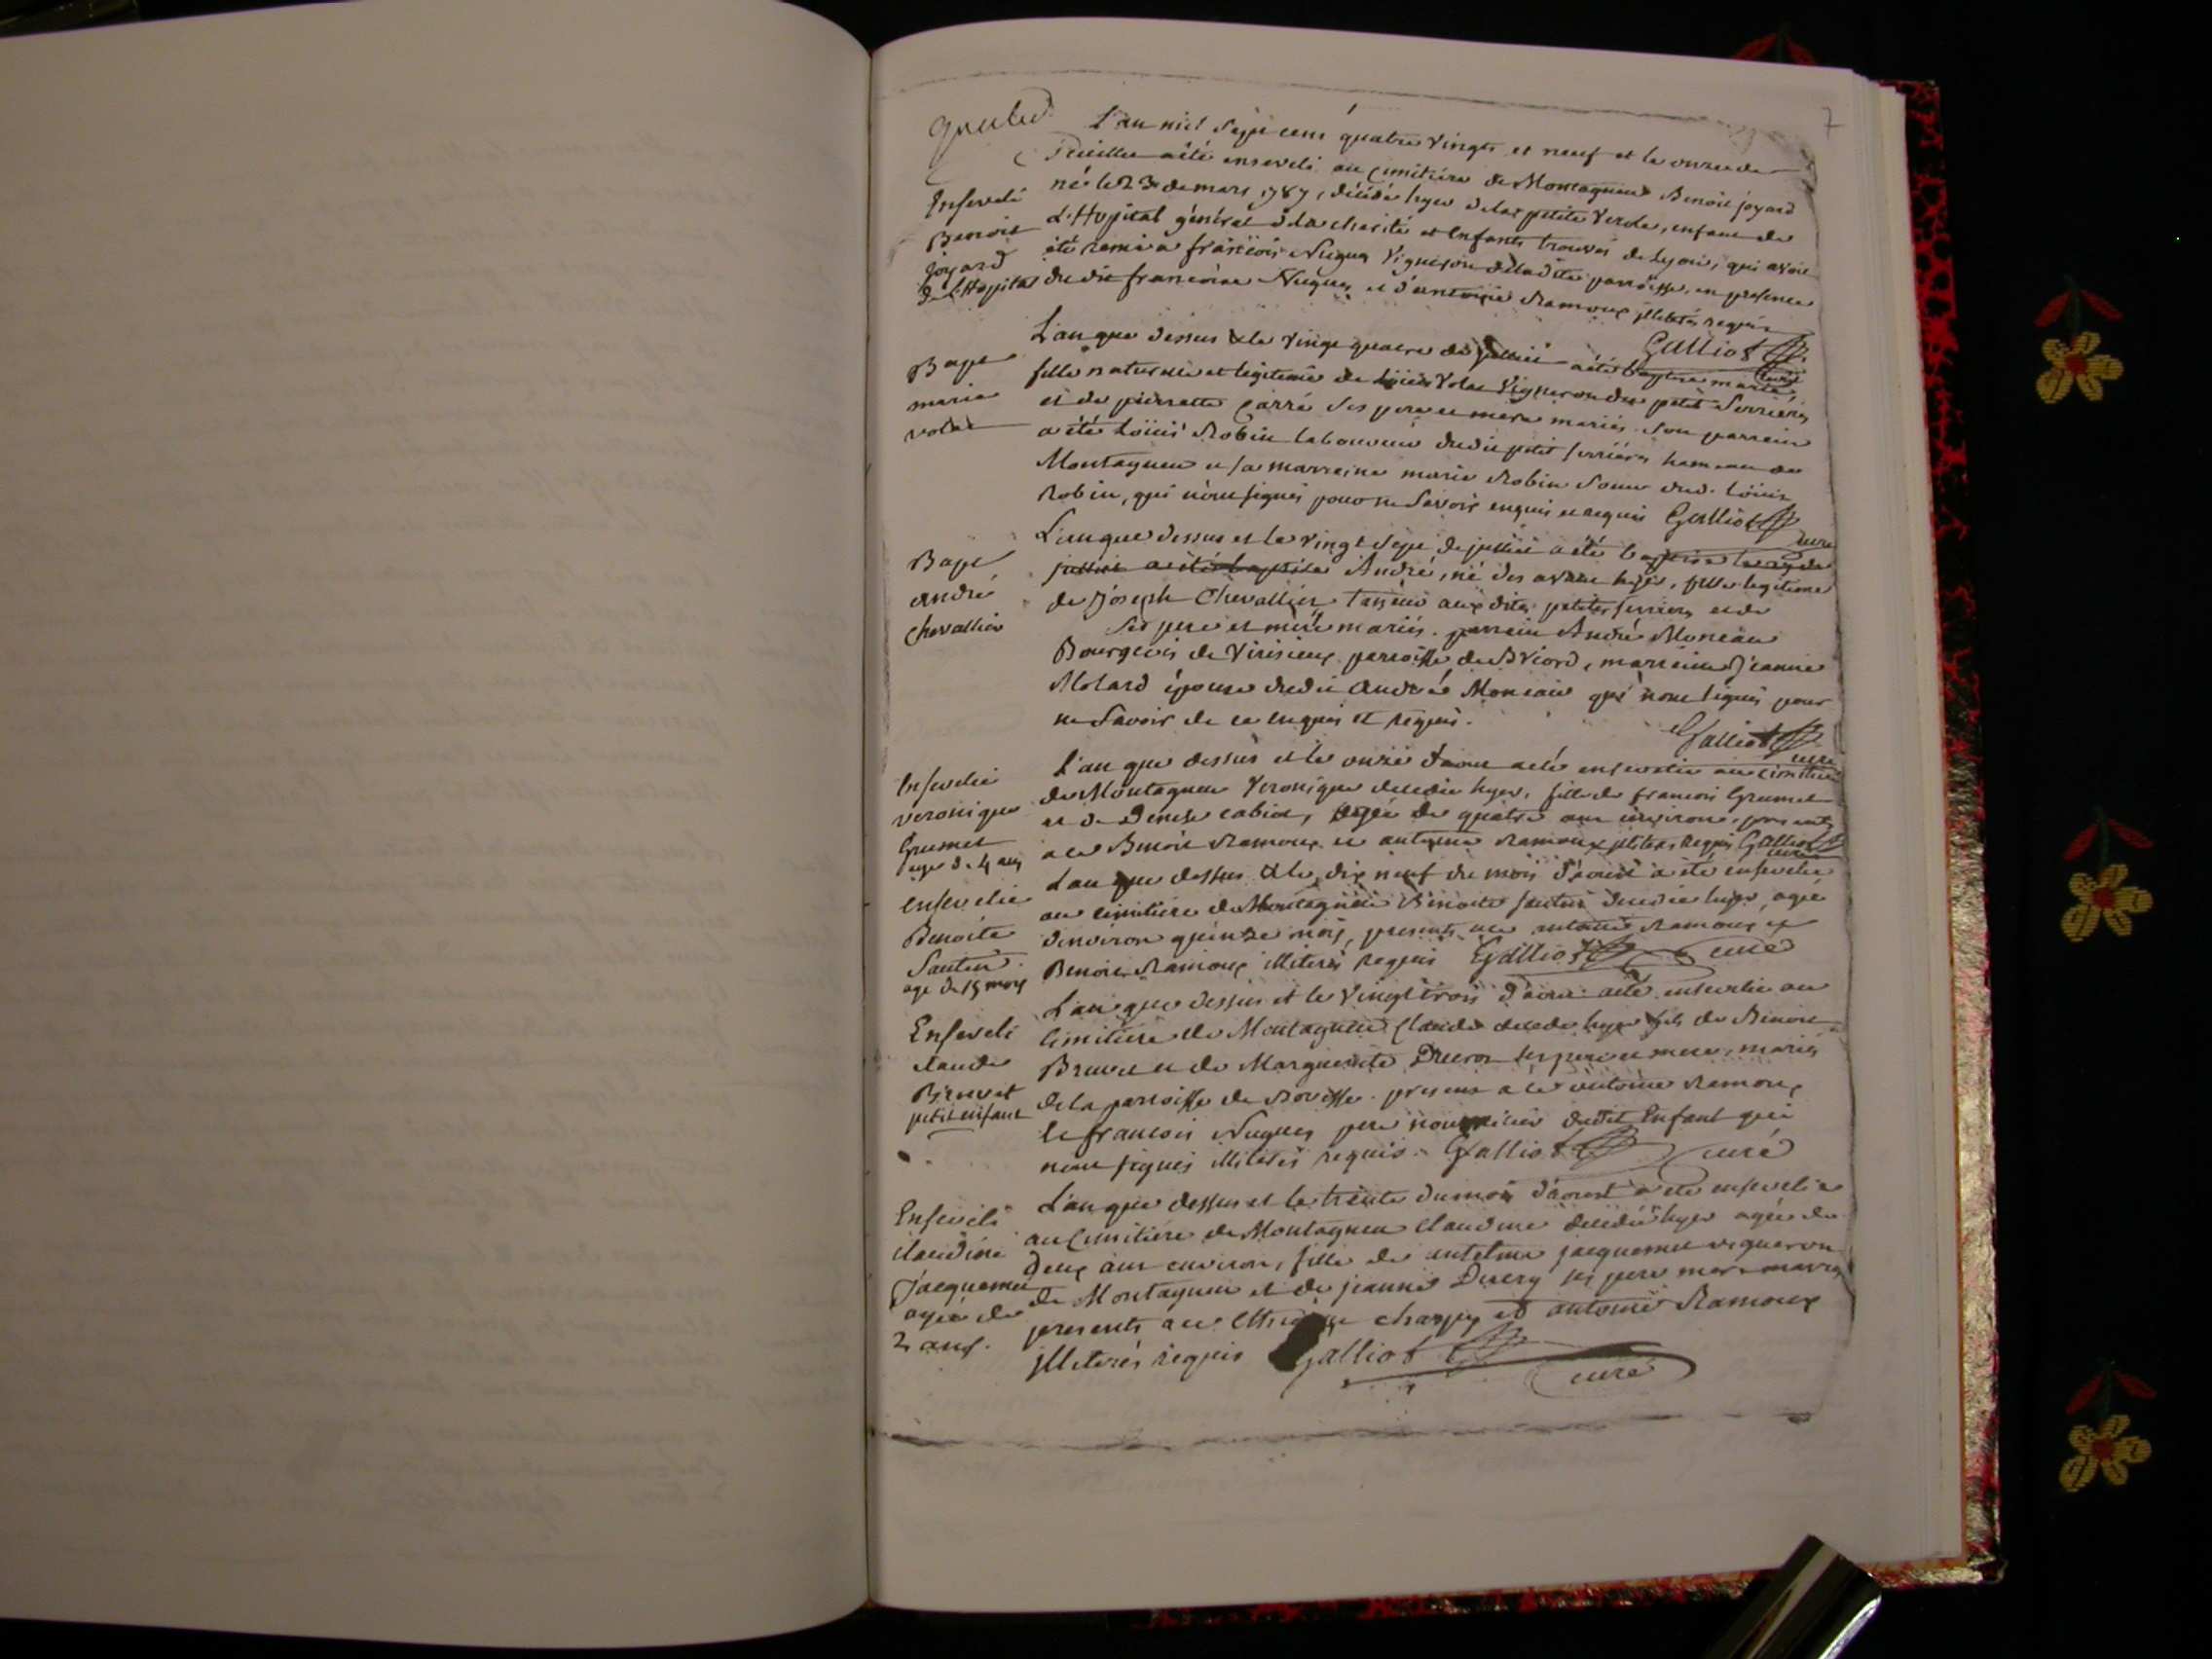 7
L'an mil sept cent quatre vingts et neuf et le onze de
Juillet a été enseveli au cimitiére de Montagnieu Benoit joyard
né le 23 de mars 1787, décédé hyer de la petite verole, enfant de
L'Hopital général de la charité et Enfants trouvés de Lyon, qui avoit
été remis a françois Nugues Vigneron de la dite parroisse, en presence
du dit francois Nugues et d'antoine Ramoux illiterés requis
Enseveli
Benoit
joyard
de l'Hopital
Galliot
curé
L'an que dessus & le vingt quatre de juillet a été baptisée marie,
fille naturelle et legitime de Loüis Volat Vigneron du petit Serrieres
et de pierrette Carré ses pere et mere mariés. Son parrein
a été Loüis Robin laboureur dudit petit serriéres hameau de
Montagnieu et sa marreine marie Robin Soeur dud. Loüis
Robin, qui n'ont signés pour ne Savoir enquis et requis Galliot
curé
Bapt
marie
volat
L'an que dessus et le vingt Sept de juillet a été baptisé
juillet a été baptisé André, né des
de Joseph Chevallier aux dites petites serrieres et de
Ses pere et mere mariés. parrein André Moncau
Bourgeois de Virisieux parroisse de Briord, marreine Jeanne
Molard épouse dudit André Moncau qui n'ont signés pour
ne Savoir de ce enquis et requis.
Galliot
curé
Bapt
André
chevallier
L'an que dessus et le onze d'aout a été ensevelie au cimitiere
de Montagnieu Veronique decedée hyer, fille de francois Grumet
et de Denise cabiot, agée de quatre ans environ, presents
a ce Benoit Ramoux et antoine Ramoux illiterés requis Galliot
curé
Ensevelie
veronique
Grumet
agée de 4 ans
L'an que dessus & le dix neuf du mois d'aoust a été ensevelie
au cimitiére de Montagnieu Benoite Santin decedée hyer, agée
d'environ quinze mois, presents a ce antoine Ramoux et
Benoit Ramoux illiterés requis Galliot curé
ensevelie
Benoite
Santin
age de 15 mois
L'an que dessus et le vingt trois d'aout a été enseveli au
Cimitiére de Montagnieu Claude decedé hyer fils de Benoit
Brunet et de Marguerite Ducros ses pere et mere, mariés
de la parroisse de . presents a ce antoine Ramoux
et francois Nugues pere nourricier dudit Enfant qui
n'ont signés illiterés requis. Galliot curé
Enseveli
claude
Brunet
petit enfant
L'an que dessus et le trente du mois d'aoust a été ensevelie
au Cimitiére de Montagnieu Claudine decedée hyer agée de
Deux ans environ, fille de antelme jacquemet vigneron
de Montagnieu et de jeanne Ducry ses pere mere mariés
presents a ce charpy et antoine Ramoux
illiterés requis Galliot
curé
Enseveli
claudine
Jacquemet
agée de
2 ans.